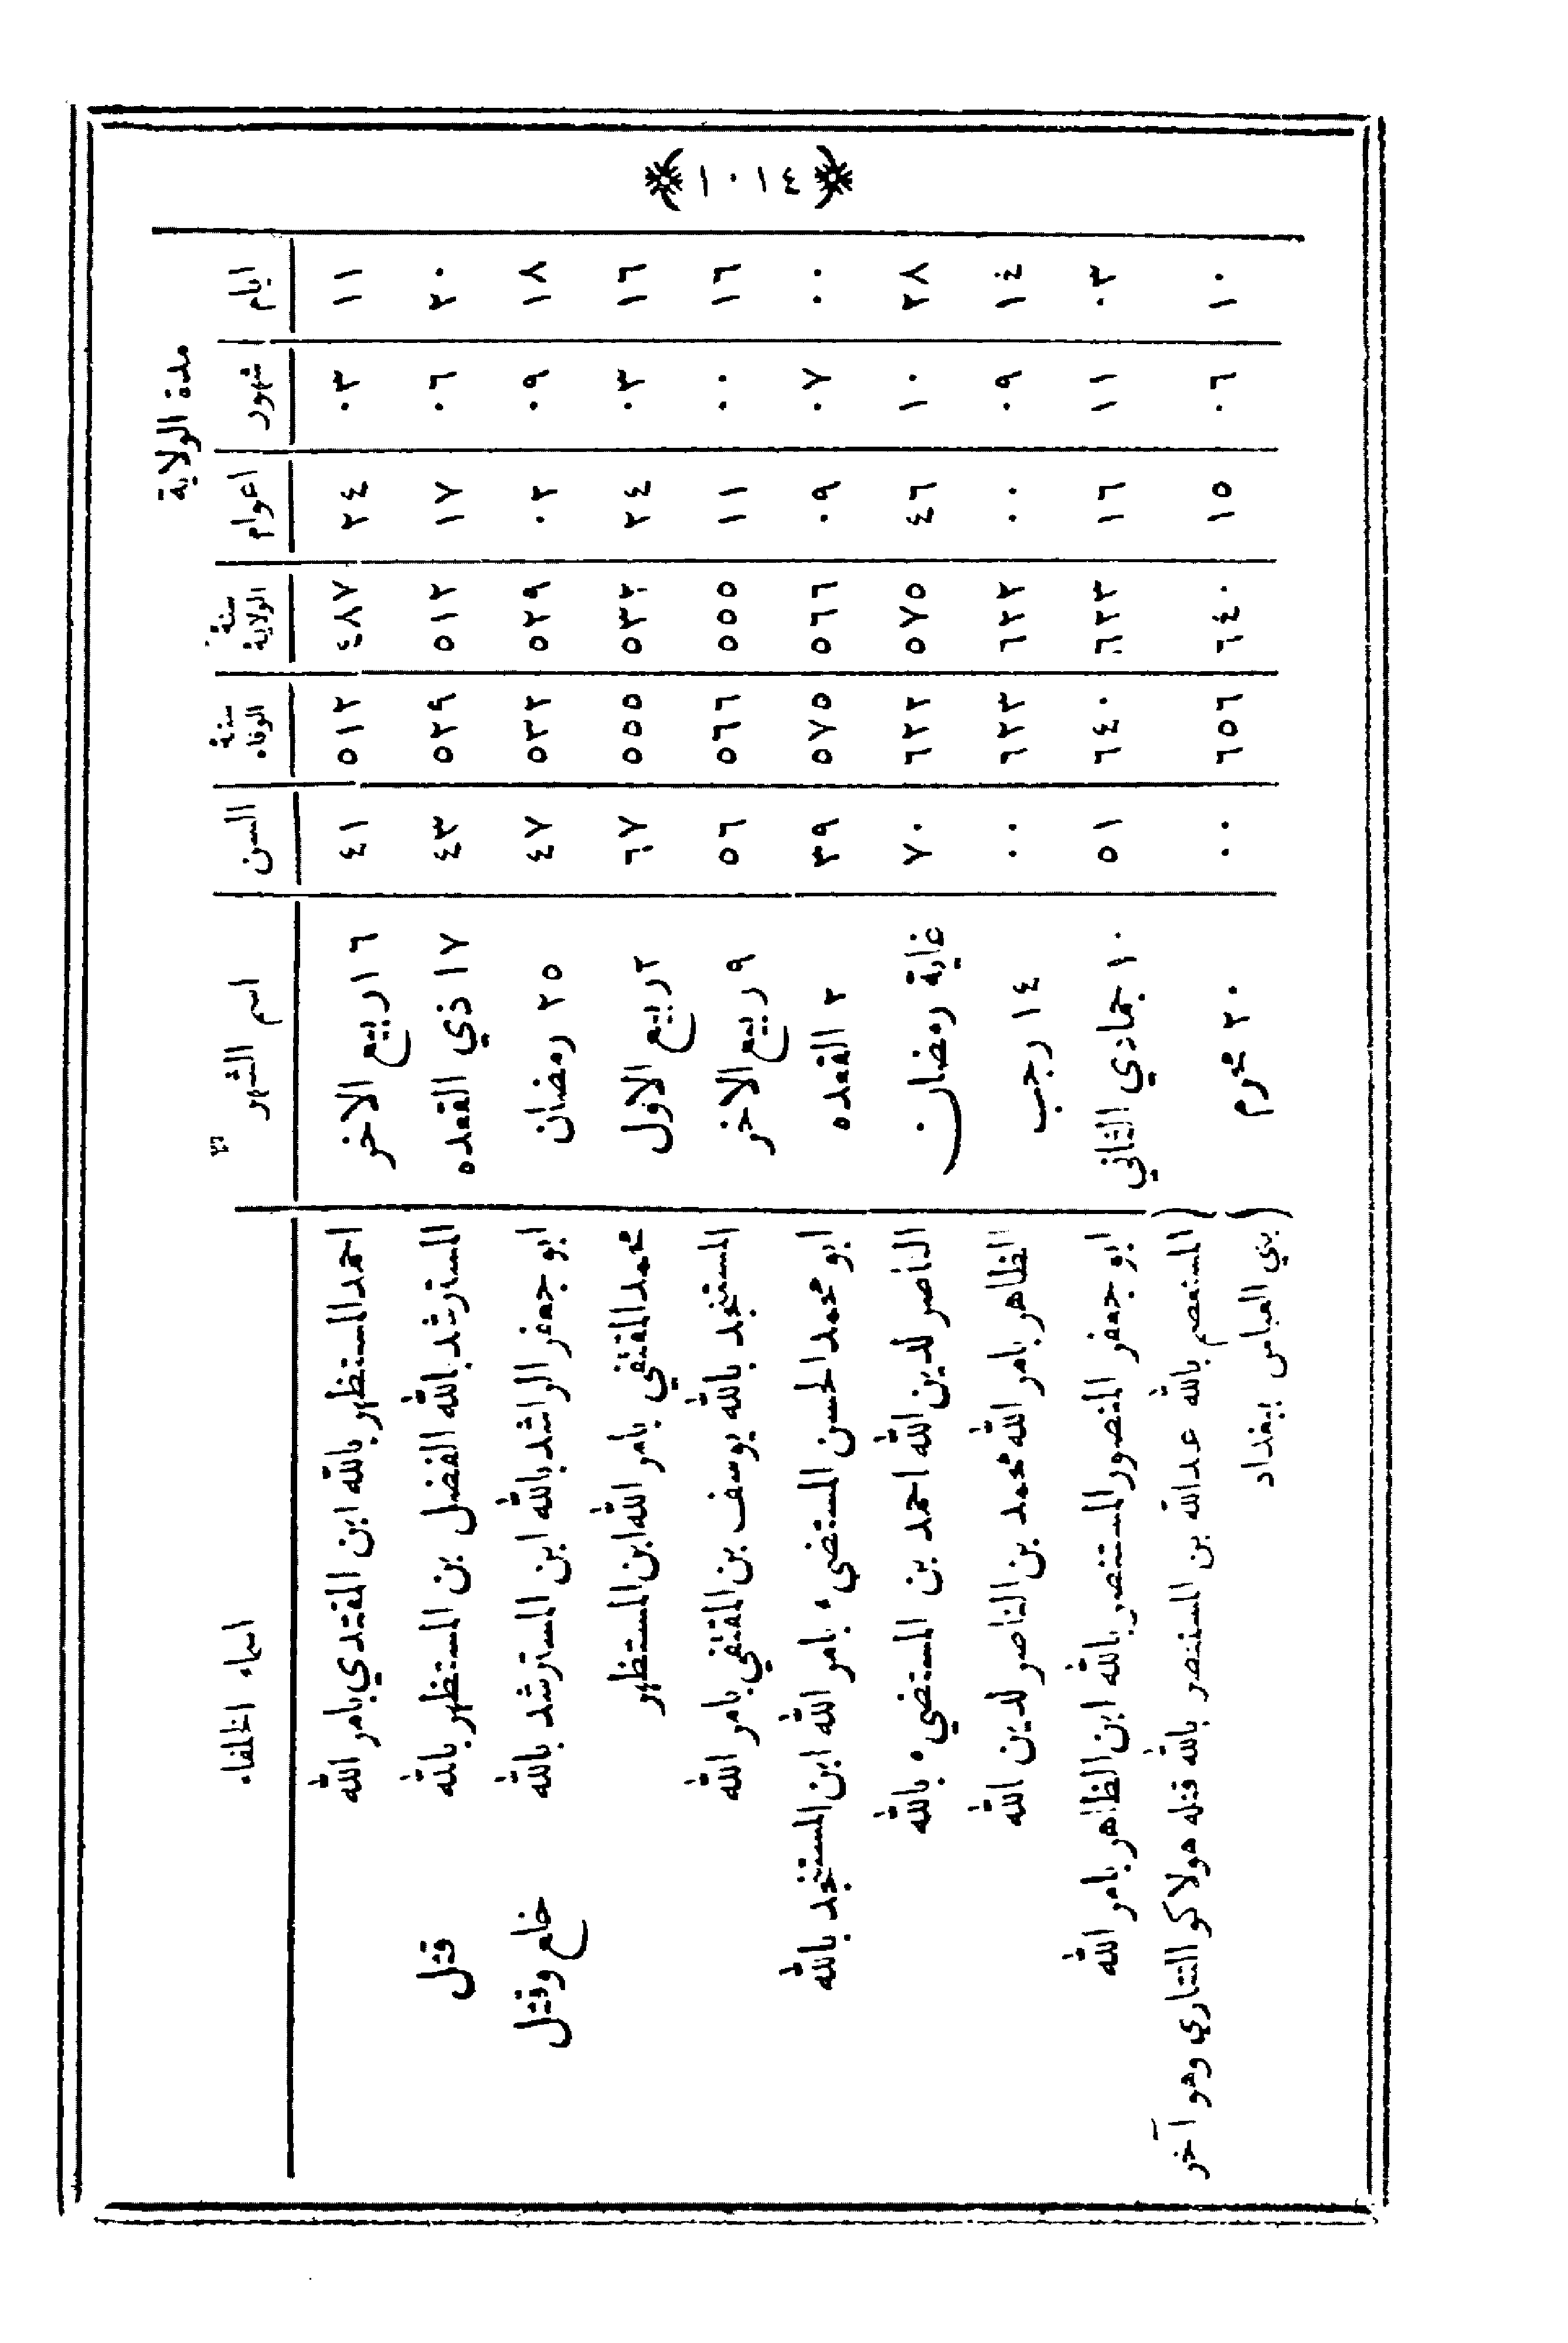 ١٠١٤
مدة الولاية
ايام شهور اعوام سنة الولاية سنة الوفاه السن اسم الشهر اسماء الخلفاء
١١ ٠٣ ٢٤ ٤٨٧ ٥١٢ ٤١ ١٦ ربيع الاخر احمد المستظهر بالله ابن المقتدي بامر الله
٢٠ ٠٦ ١٧ ٥١٢ ٥٢٩ ٤٣ ١٧ ذي القعده المسترشد بالله الفضل بن المستظهر بالله قتل
١٨ ٠٩ ٠٢ ٥٢٩ ٥٣٢ ٤٧ ٢٥ رمضان ابو جعفر الراشد بالله ابن المسترشد بالله خلع وقتل
١٦ ٠٣ ٢٤ ٥٣٢ ٥٥٥ ٦٧ ٢ ربيع الاول محمد المقتفي بامر الله ابن المستظهر
١٦ ٠٠ ١١ ٥٥٥ ٥٦٦ ٥٦ ٩ ربيع الاخر المستنجد بالله يوسف بن المقتفي بامر الله
٠٠ ٠٧ ٠٩ ٥٦٦ ٥٧٥ ٣٩ ٢ القعده ابو محمد الحسن المستضيء بامر الله ابن المستنجد بالله
٢٨ ١٠ ٤٦ ٥٧٥ ٦٢٢ ٧٠ غاية رمضان الناصر لدين الله احمد بن المستضيء بالله
١٤ ٠٩ ٠٠ ٦٢٢ ٦٢٣ ٠٠ ١٤ رجب الظاهر بامر الله محمد بن الناصر لدين الله
٠٣ ١١ ١٦ ٦٢٣ ٦٤٠ ٥١ ١٠ جمادي الثاني ابو جعفر المنصور المستنصر بالله ابن الظاهر بامر الله
١٠ ٠٦ ١٥ ٦٤٠ ٦٥٦ ٠٠ ٢٠ محرم (المستعصم بالله عبدالله بن المستنصر بالله قتله هولاكو التتاري وهو آخر
(بني العباس ببغداد